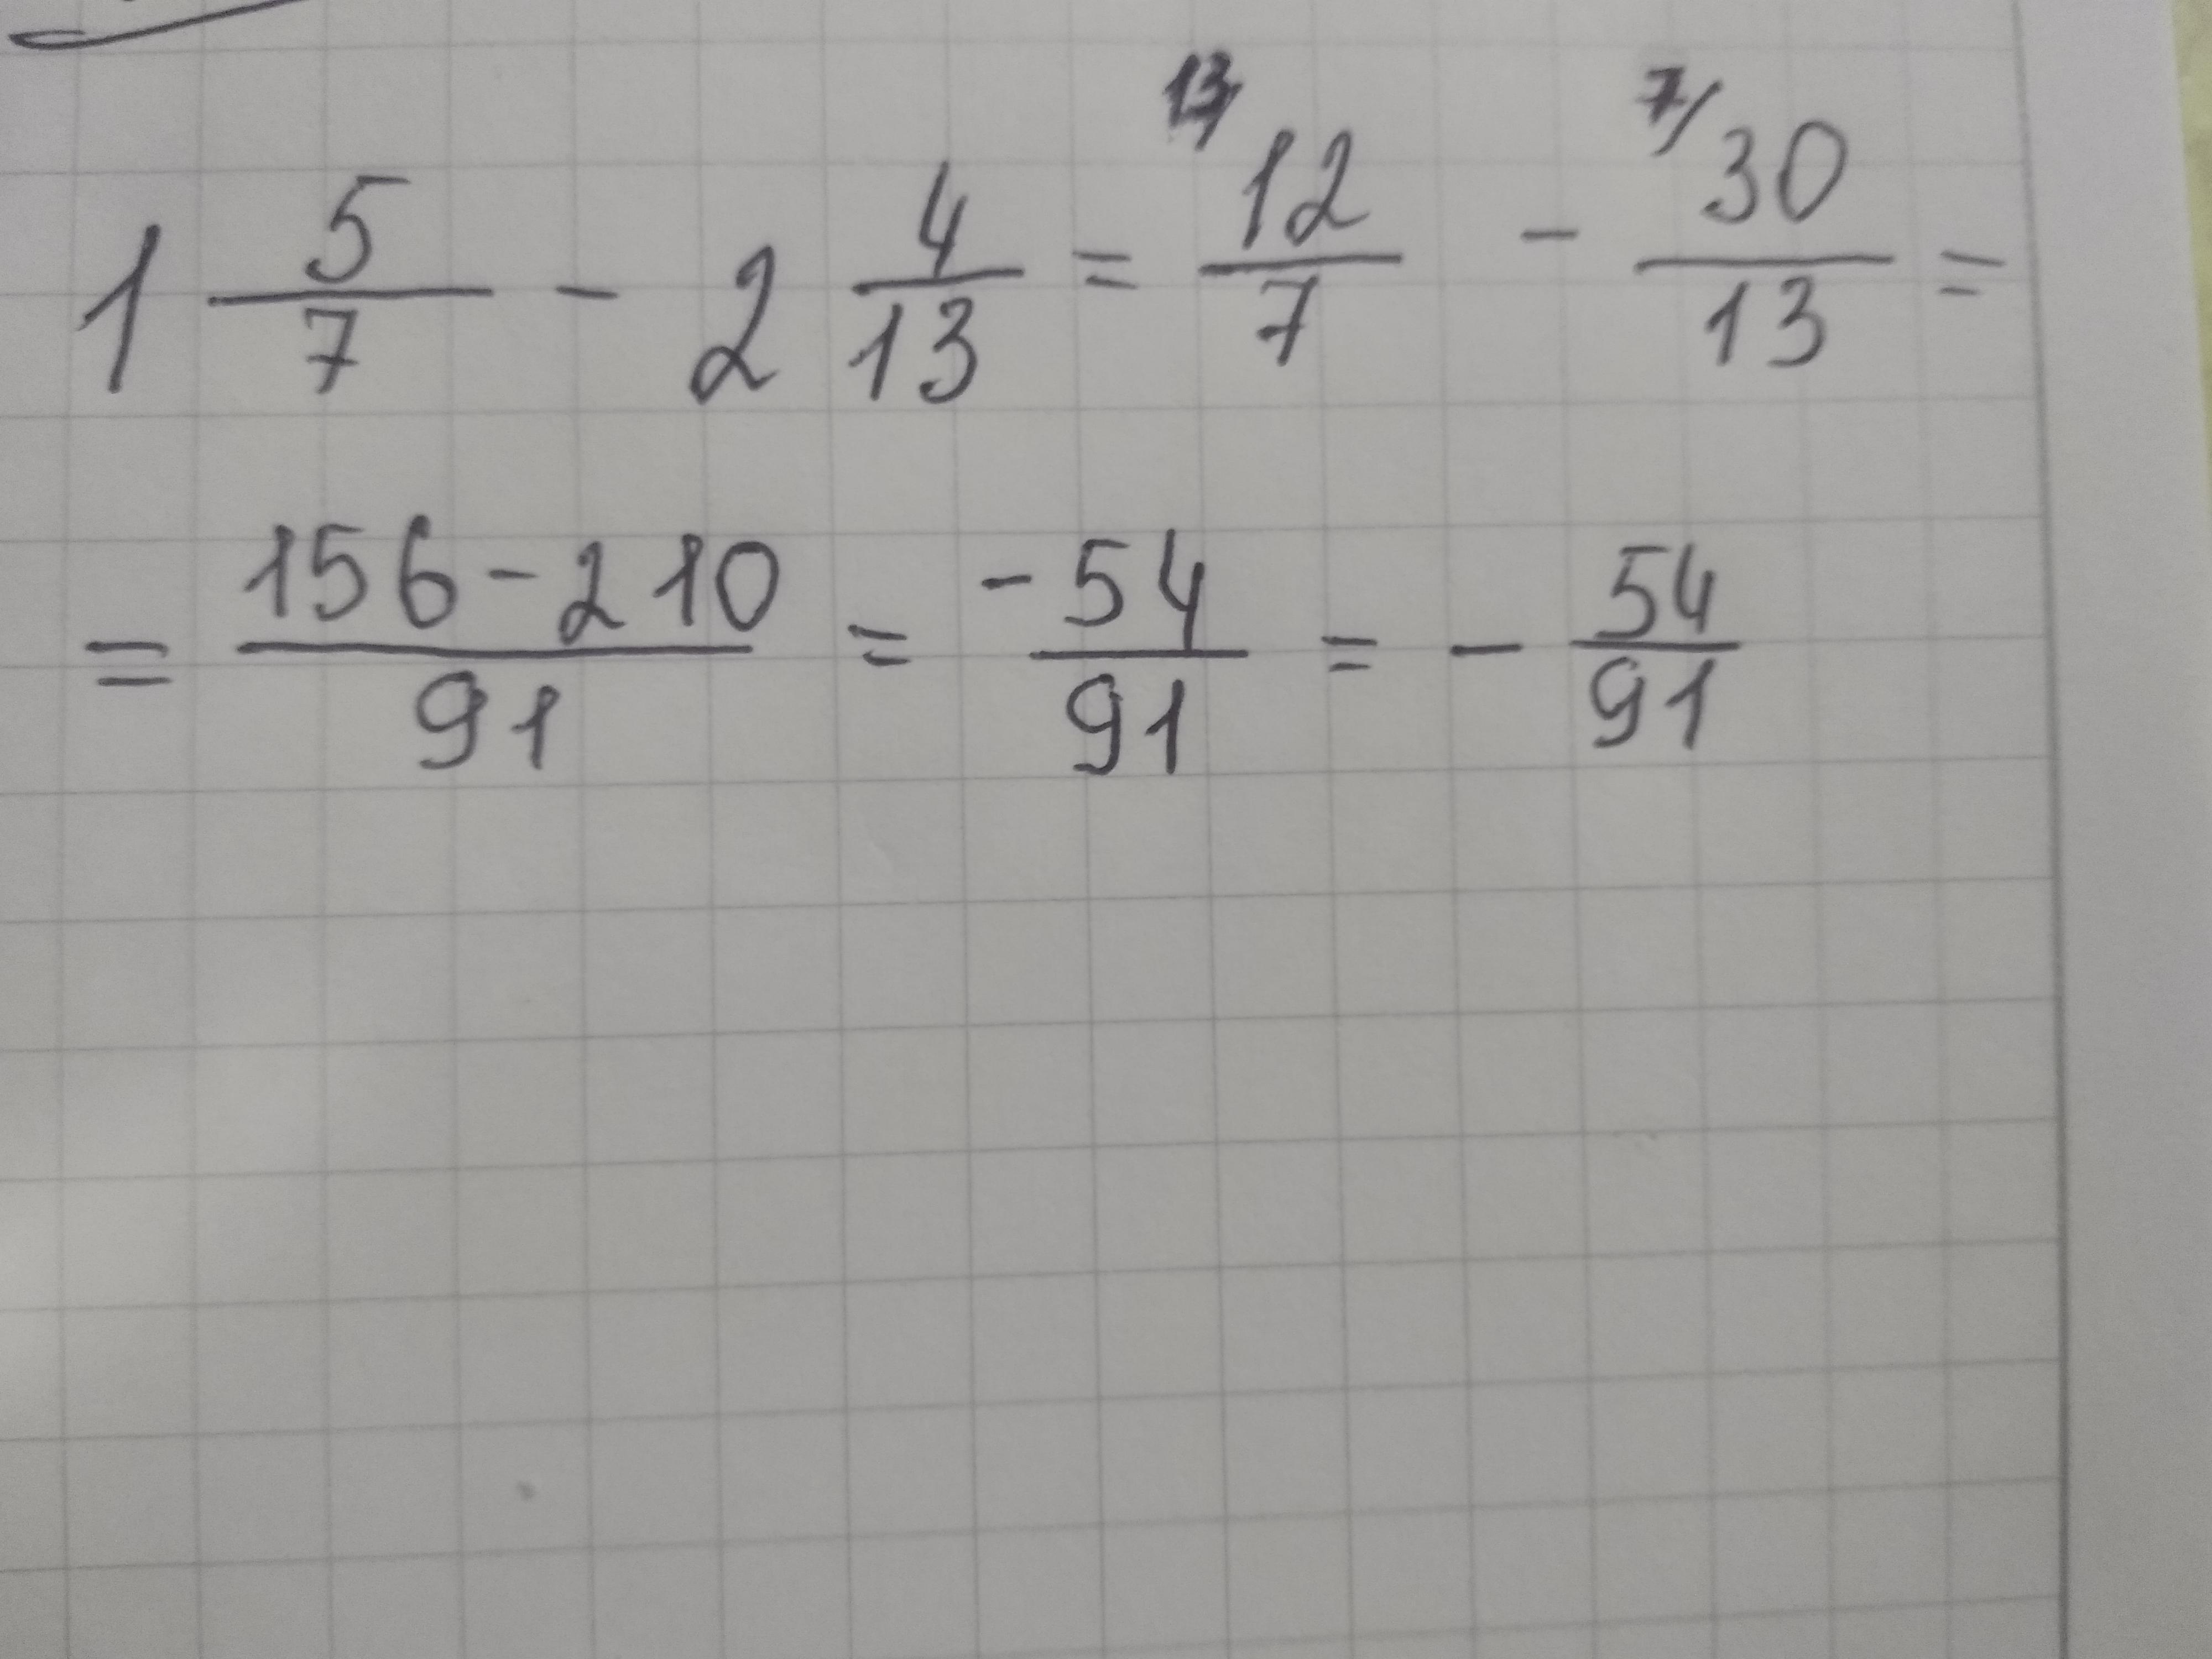 1 5/7 - 2 4/13 = 13/ 12/7 - 7/ 30/13 =
= 156-210/91 = -54/91 = - 54/91